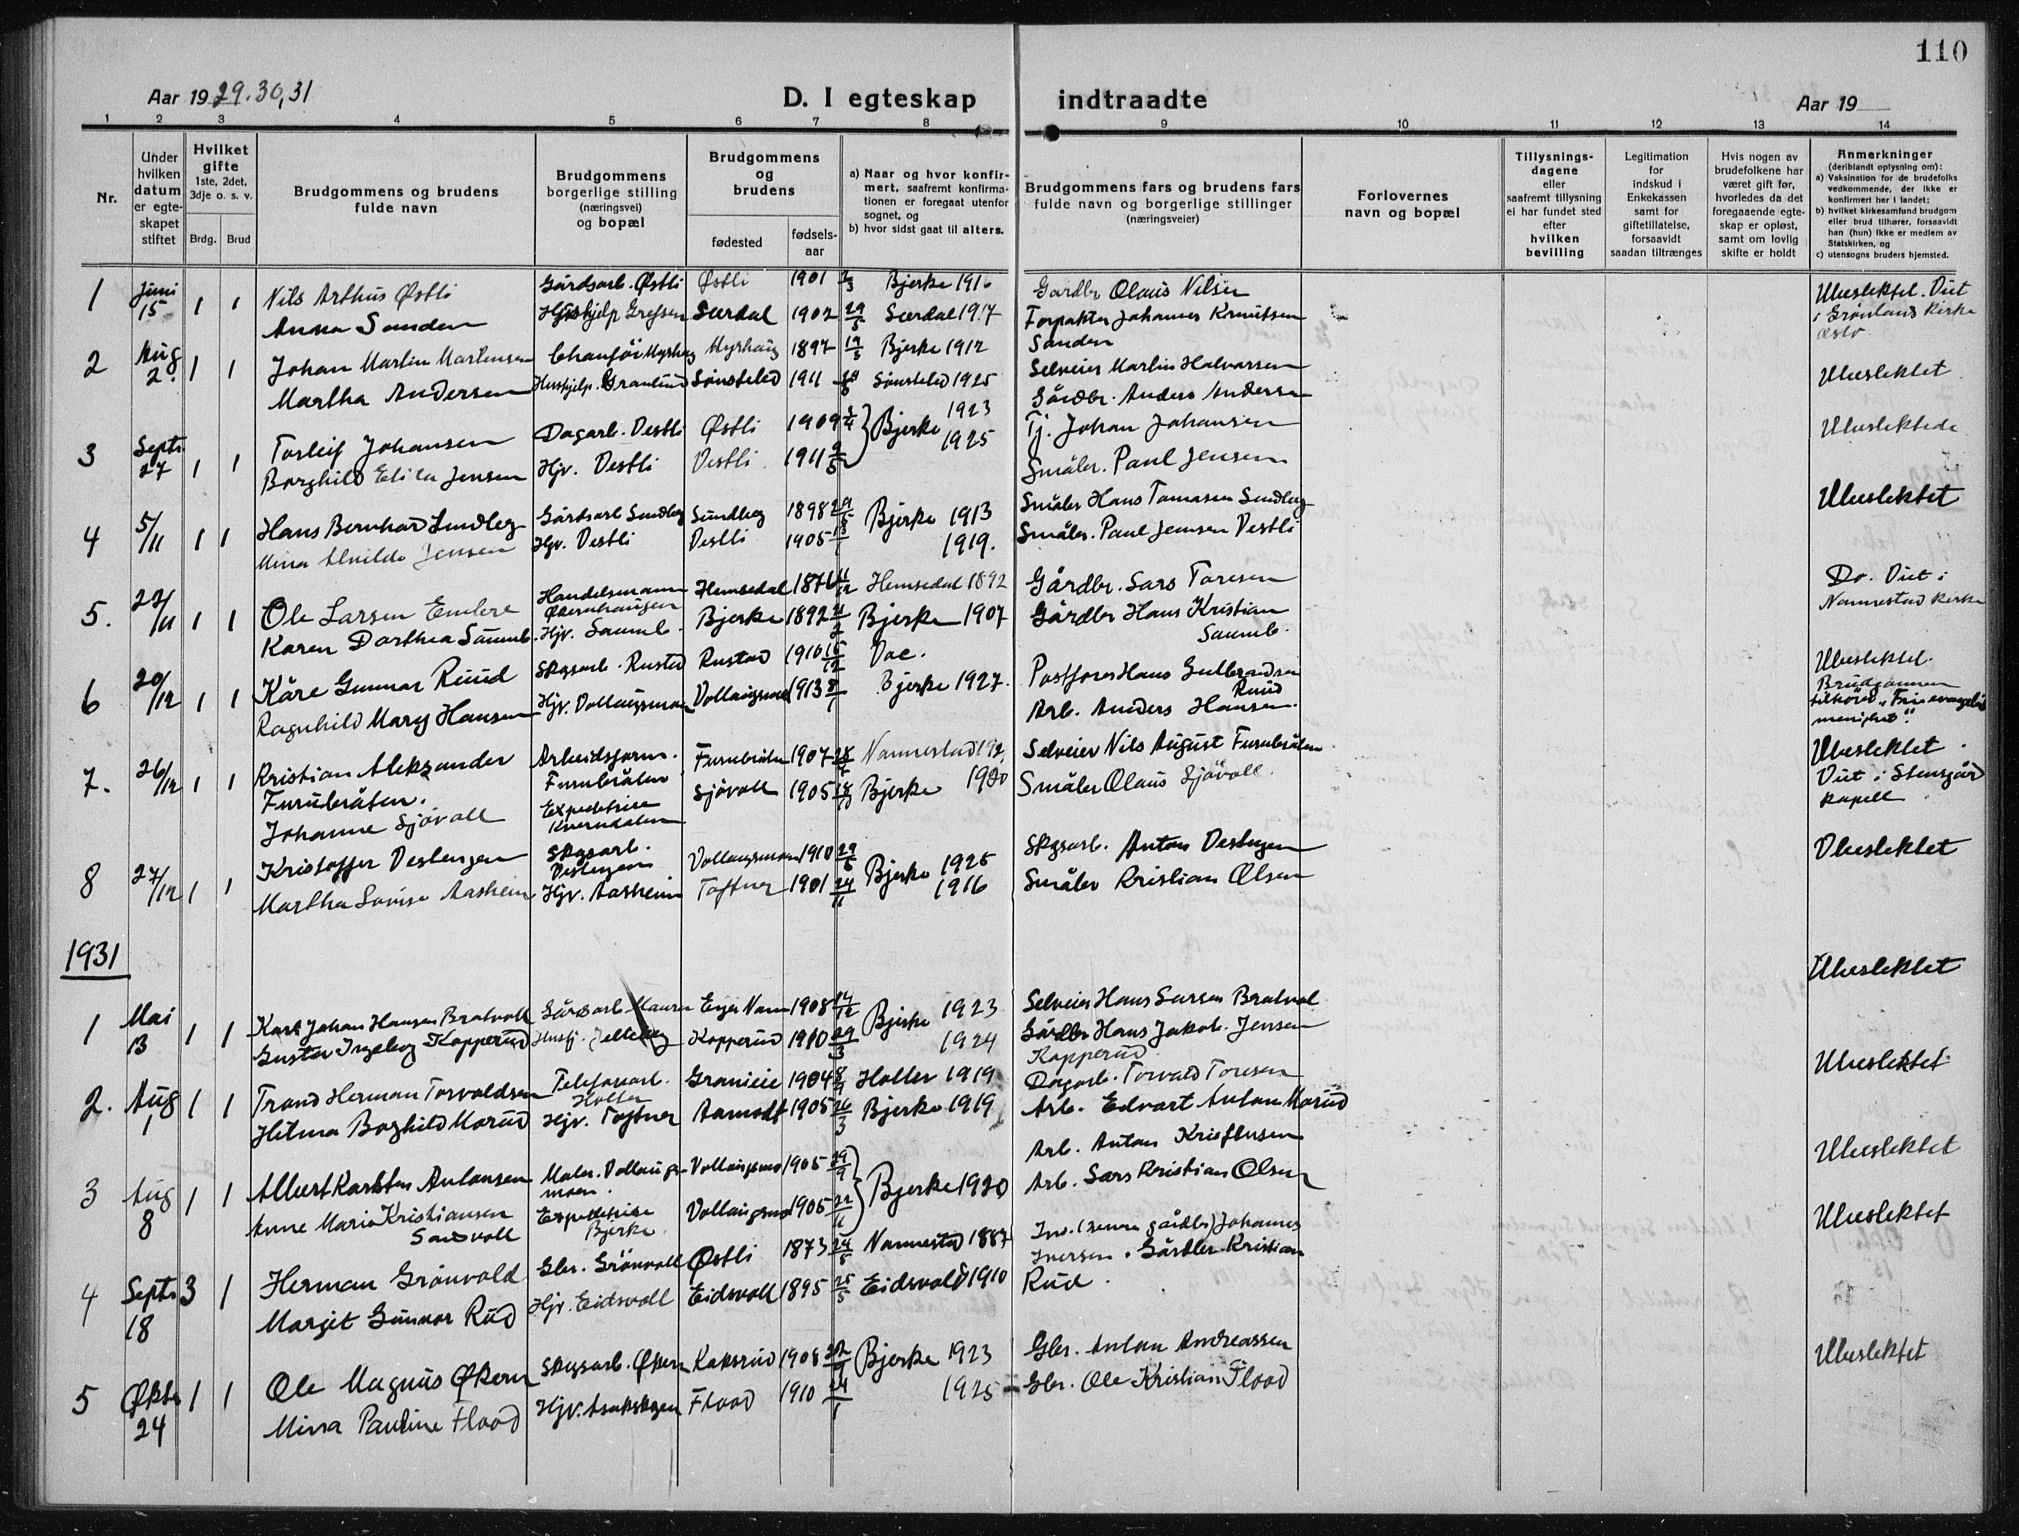 110
Aar 1929.30,31
D. I egteskap indtraadte
Aar 19
1 2 3 4 5 6 7 8 9 10 11 12 13 14
Nr.
Under hvilken datum er egteskapet stiftet
Hvilket gifte 1ste, 2det, 3dje o. s. v.
Brdg. Brud
Brudgommens og brudens fulde navn
Brudgommens borgerlige stilling (næringsvei) og bopæl
Brudgommens og brudens
fødested
fødselsaar
a) Naar og hvor konfirmert, saafremt konfirmationen er foregaat utenfor sognet, og
b) hvor sidst gaat til alters.
Brudgommens fars og brudens fars fulde navn og borgerlige stillinger (næringsveier)
Forlovernes navn og bopæl
Tillysningsdagene eller saafremt tillysning ei har fundet sted efter hvilken bevilling
Legitimation for indskud i Enkekassen samt for giftetillatelse, forsaavidt saadan tiltrænges
Hvis nogen av brudefolkene har været gift før, hvorledes da det foregaaende egteskap er opløst, samt om lovlig skifte er holdt
Anmerkninger (deriblandt oplysning om):
a) Vaksination for de brudefolks vedkommende, der ikke er konfirmert her i landet;
b) hvilket kirkesamfund brudgom eller brud tilhører, forsaavidt han (hun) ikke er medlem av Statskirken, og
c) utensogns bruders hjemsted.
1 Juni 15 1 1 Nils Arthus Østli Gårdsarb. Østli Østli 1901 Bjerke 1916 Gårdbr Olaus Nilsen Ubeslektet. Viet
Anna Sanden Hushjelp Grefsen Særdal 1902 29/5 Særdal 1917 Forpakter Johannes Knutsen i Grønlands kirke
Sanden Oslo
2 Aug 2. 1 1 Johan Martin Martinsen Myrhaug 1897 19/5 Bjerke 1912 Selveier Martin Halvorsen Ubeslektet
Martha Andersen Hushjelp. Granlund Sønsteled 1911 Sønsteled 1925 Gårdbr. Anders Andersen
3 Septr. 27 1 1 Torleif Johansen Dagarb. Vestli Østli 1909 Bjerke 1923 Tj. Johan Johansen Ubeslektede
Borghild Jensen Hjv. Vestli Vestli 1911 1925 Småbr. Paul Jensen
4 5/11 1 1 Hans Bernhard Sundbeg Gårdsarb Sundbeg Sundbeg 1898 Bjerke 1913 Småbr Hans Tomasen Sundbeg Ubeslektet
Mina Jensen Hjv. Vestli Vestli 1905 1919. Småbr. Paul Jensen Vestli
5. 22/11 1 1 Ole Larsen Handelsmann Hemsedal 1871 Hemsedal 1892 Gårdbr. Lars Toresen Do. Viet i
Karen Dorthea Saumb. Hjv. Saumb. Bjerke 1892 Bjerke 1907 Gårdbr Hans Kristian Nannestad kirke
Saumb.
6 20/12 1 1 Kåre Gunnar Ruud Skgsarb. Rustad Rustad 1910 15/12 Vac. Postfører Hans Gulbrandsen Ubeslektet.
Ruud Brudgommen
Ragnhild Mary Hansen Hjv. Vollaugsmoen Vollaugsmoen 1913 Bjerke 1927. Arb. Anders Hansen. tilhører „Fri evangelisk
menighet".
7. 26/12 1 1 Kristian Aleksander Arbeidsform. Furubråten 1907 Nannestad Selveier Nils August Furubråten Ubeslektet.
Furubråten. Furubråten Viet i Stensgård
Johanne Sjøvoll Expeditrise Kverndalen Sjøvoll 1905 Bjerke 1920 Småbr Olaus Sjøvoll. kapell
8 27/12 1 1 Kristoffer Vestengen Skgsarb. Vestengen Vollaugsmoen 1910 29/5 Bjerke 1925 Skgsarb. Anton Vestengen Ubeslektet
Martha Lovise Aasheim Hjv. Aasheim Toftner 1901 24/11 1916 Småbr Kristian Olsen
1931 Ubeslektet
1 Mai 13 1 1 Karl Johan Hansen Bratvoll Gårdsarb Maura Enger Nann 1908 Bjerke 1923 Selveier Hans Larsen Bratvol
Gusta Ingebog Kopperud Kopperud 1910 29/3 1924 Gårdbr Hans Jakob Jensen
Kopperud
2. Aug 1 1 1 Trond Herman Torvaldsen Telefonarb. Holter Granlie 1904 8/9 Holter 1919 Dagarb. Torvald Toresen Ubeslektet.
Helma Borghild Morud Hjv. Toftner Aamodt 1905 26/3 Bjerke 1919 Arb. Edvart Anton Morud
3 Aug 8 1 1 Albert Karsten Antonsen Maler. Vollaugsmoen. Vollaugsmo 1905 29/9 Bjerke 1920 Arb. Anton Kristensen Ubeslektet
Anne Marie Kristiansen Expeditrise Vollaugsmo 1905 22/11 Arb. Lars Kristian Olsen
Sandvoll Bjerke
4 Septr 18 3 1 Herman Grønvold Gbr. Grønvoll Østli 1873 24/5 Nannestad 1887 Inv. (senere gårdbr) Johannes Ubeslektet
Iversen. Gårdbr. Kristian
Margit Gunnor Rud Hjv. Eidsvoll Eidsvoll 1895 25/5 Eidsvold 1910 Rud.
5 Øktr 24 1 1 Ole Magnus Økern Skgsarb. Økern Kaksrud 1908 Bjerke 1923 Gbr. Anton Andreassen Ubeslektet
Mina Pauline Flood Hjv. Flood 1910 24/1 1925 Gbr. Ole Kristian Flood